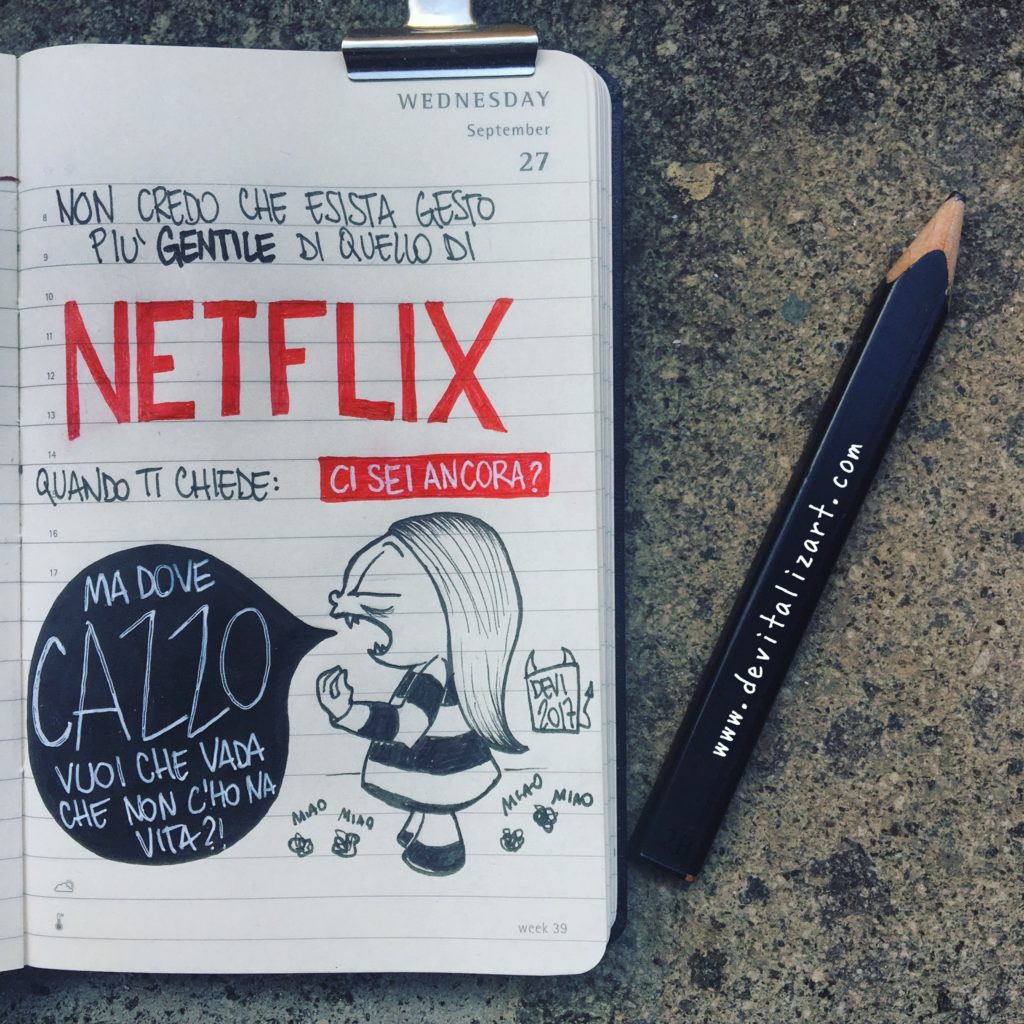 WEDNESDAY
September
27
8
NON CREDO CHE ESISTA GESTO
9
PIU' GENTILE DI QUELLO DI
10
11
12
13
NETFLIX
14
QUANDO TI CHIEDE: CI SEI ANCORA?
16
17
MA DOVE
CAZZO
VUOI CHE VADA
CHE NON C'HO NA
VITA?!
DEVI
2017
MIAO
MIAO
MIAO
MIAO
week 39
www.devitalizart.com